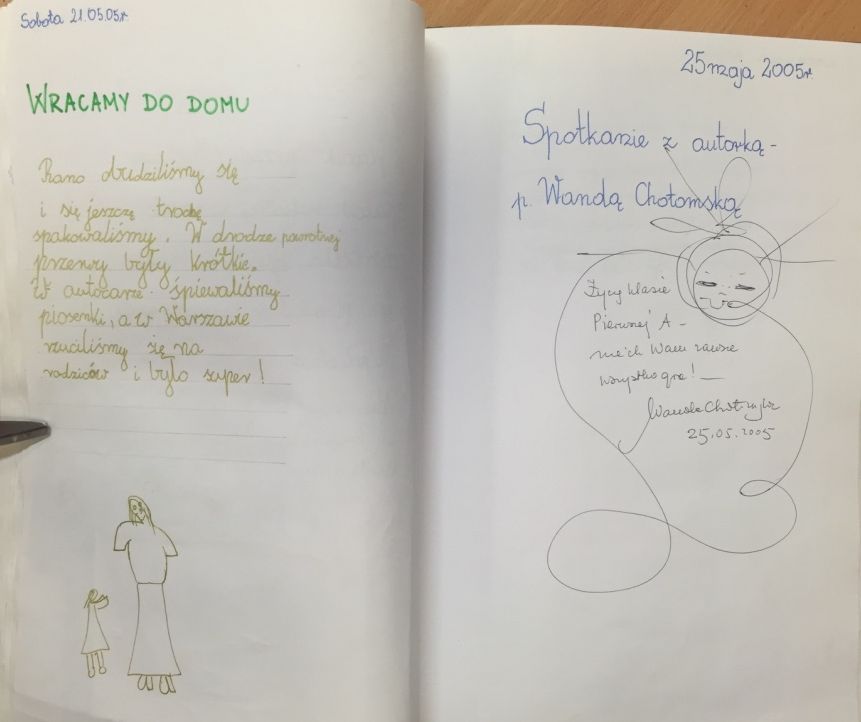 Sobota 21.05.05r.
WRACAMY DO DOMU
Rano obudziliśmy się
i się jeszczę trochę
spakowaliśmy. W drodze powrotnej
przerwy były krótkie.
W autocarze śpiewaliśmy
piosenki, a w Warszawie
rzuciliśmy się na
rodziców i było super!
25 maja 2005r
Spotkanie z autorką -
p. Wandą Chotomską
Życzę klasie
Pierwszej A -
niech Wam zawsze
wszystko gra! —
Wanda Chotomska
25.05.2005